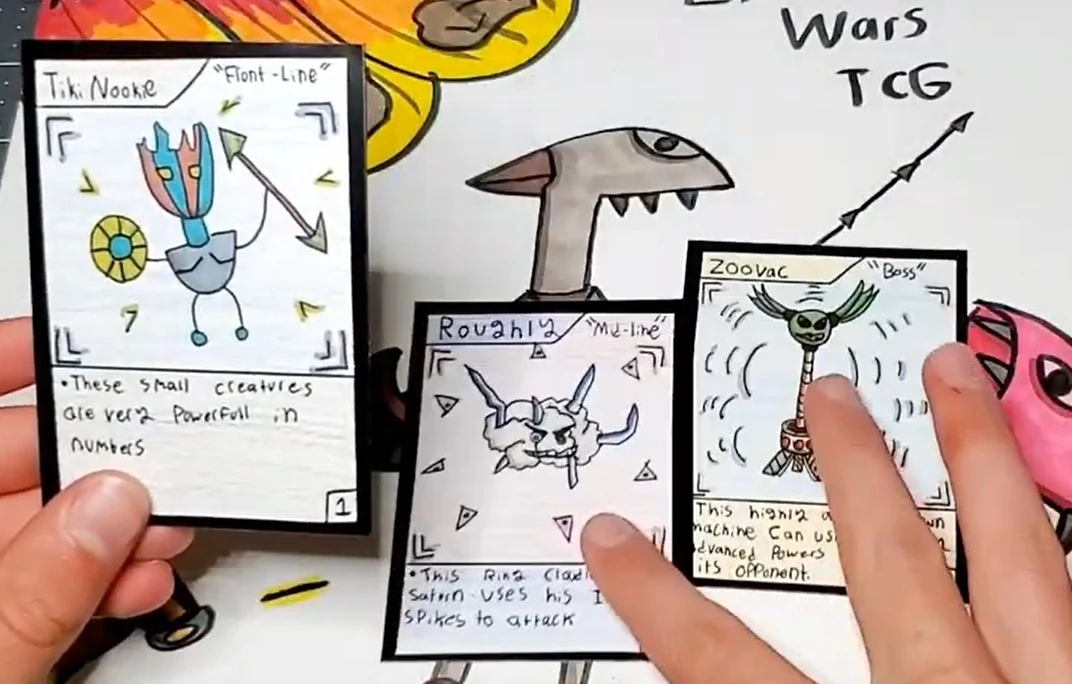 Wars
TCG
Tiki Nookie
"Front-Line"
• These small creatures
are very Powerfull in
numbers
1
Roughly
"Mid-line"
• This Ring
Saturn uses his
spikes to attack
Zoovac
"Boss"
This highly
machine Can
advanced Powers
its opponent.